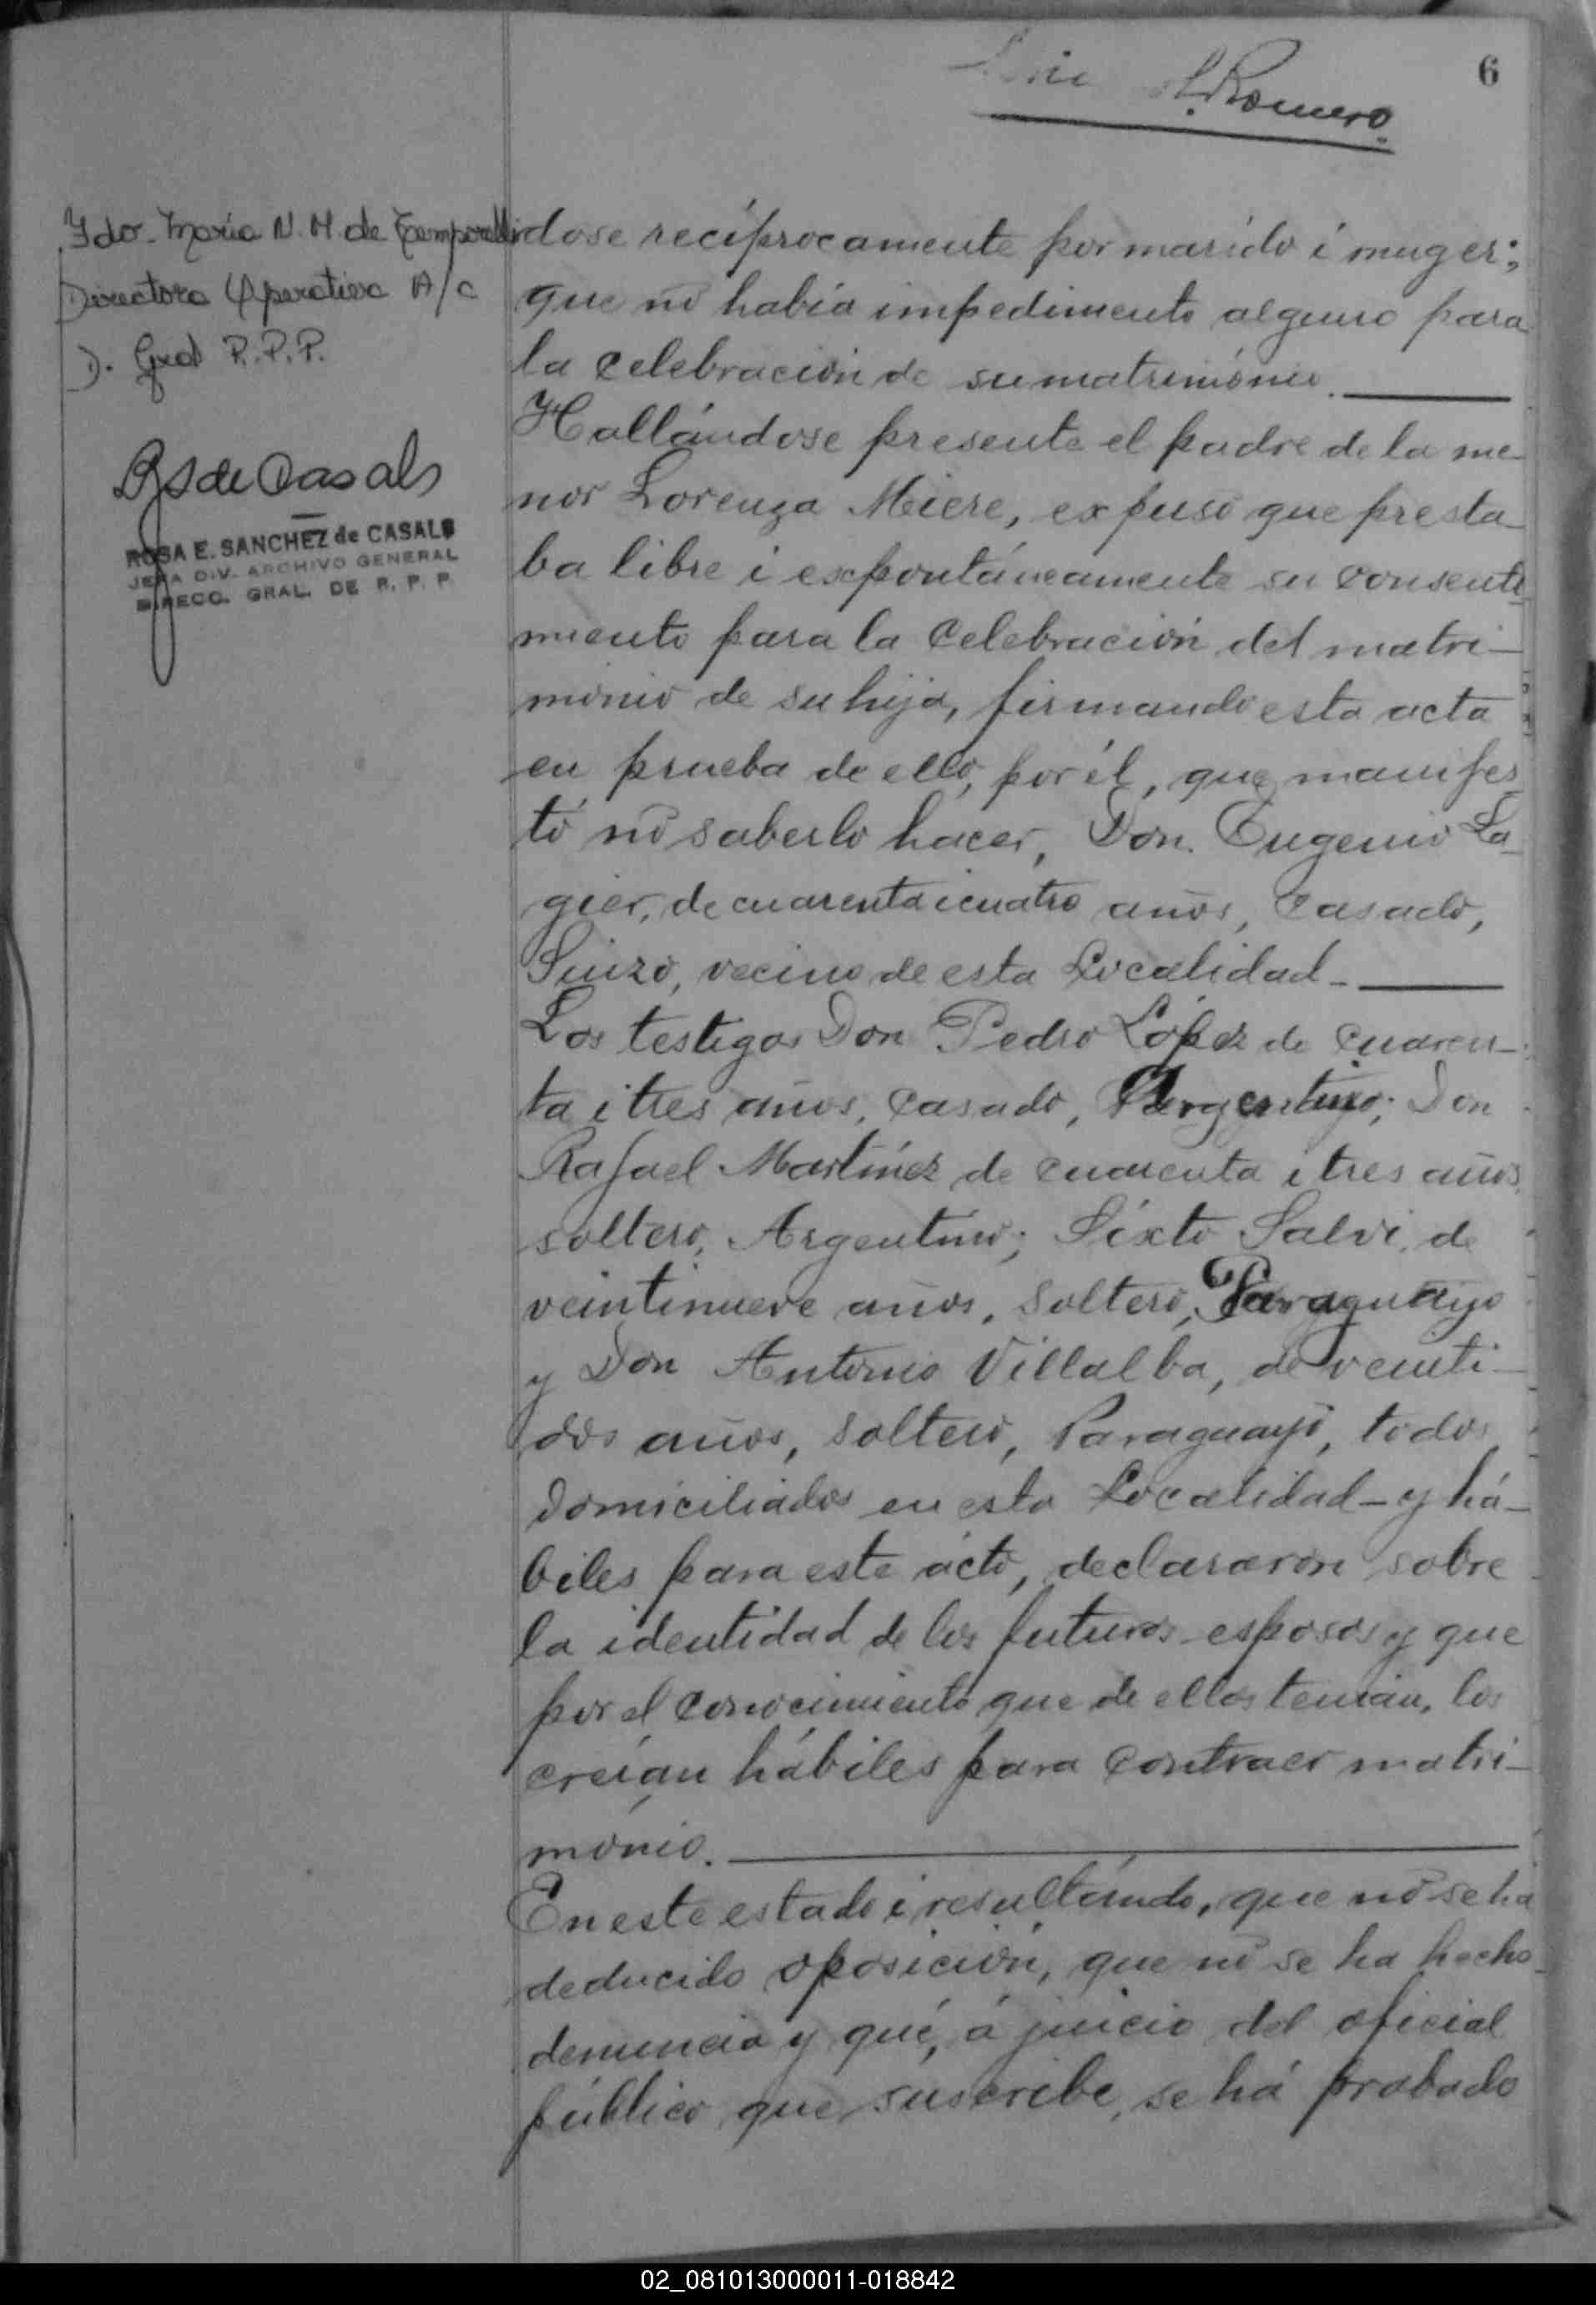 6
Romero
Fdo. María N. M. de
Directora Operativa A/c
D. Gral R.P.P.
RS de Casals
ROSA E. SANCHEZ de CASALS
JEFA DIV. ARCHIVO GENERAL
DIRECC. GRAL. DE R. P. P.
dose recíprocamente por marido i muger;
que nó había impedimento alguno para
la celebración de su matrimónio.
Hallándose presente el padre de la me-
nor Lorenza Miere, expuso que presta-
ba libre i expontáneamente su consenti-
miento para la Celebración del matri-
monio de su hija, firmando esta acta
en prueba de ello, por él, que manifes-
tó nó saberlo hacer, Don Eugenio La-
gier, de cuarenta i cuatro años, Casado,
Suizo, vecino de esta Localidad-
Los testigos Don Pedro López de cuaren-
ta i tres años, Casado, Argentino; Don
Rafael Martínez de cuarenta i tres años,
soltero, Argentino; Sixto Salvi, de
veintinueve años, soltero, Paraguayo
y Don Antonio Villalba, de veinti-
dos años, soltero, Paraguayo, todos
domiciliados en esta Localidad- y há-
biles para este ácto, declararon sobre
la identidad de los futuros esposos y que
por el conocimiento que de ellos tenían, los
creían hábiles para contraer matri-
mónio.
En este estado i resultándo, que nó se ha
deducido oposición, que nó se ha hecho
denuncia y qué, á juicio del oficial
público que suscribe, se há probado
02_081013000011-018842